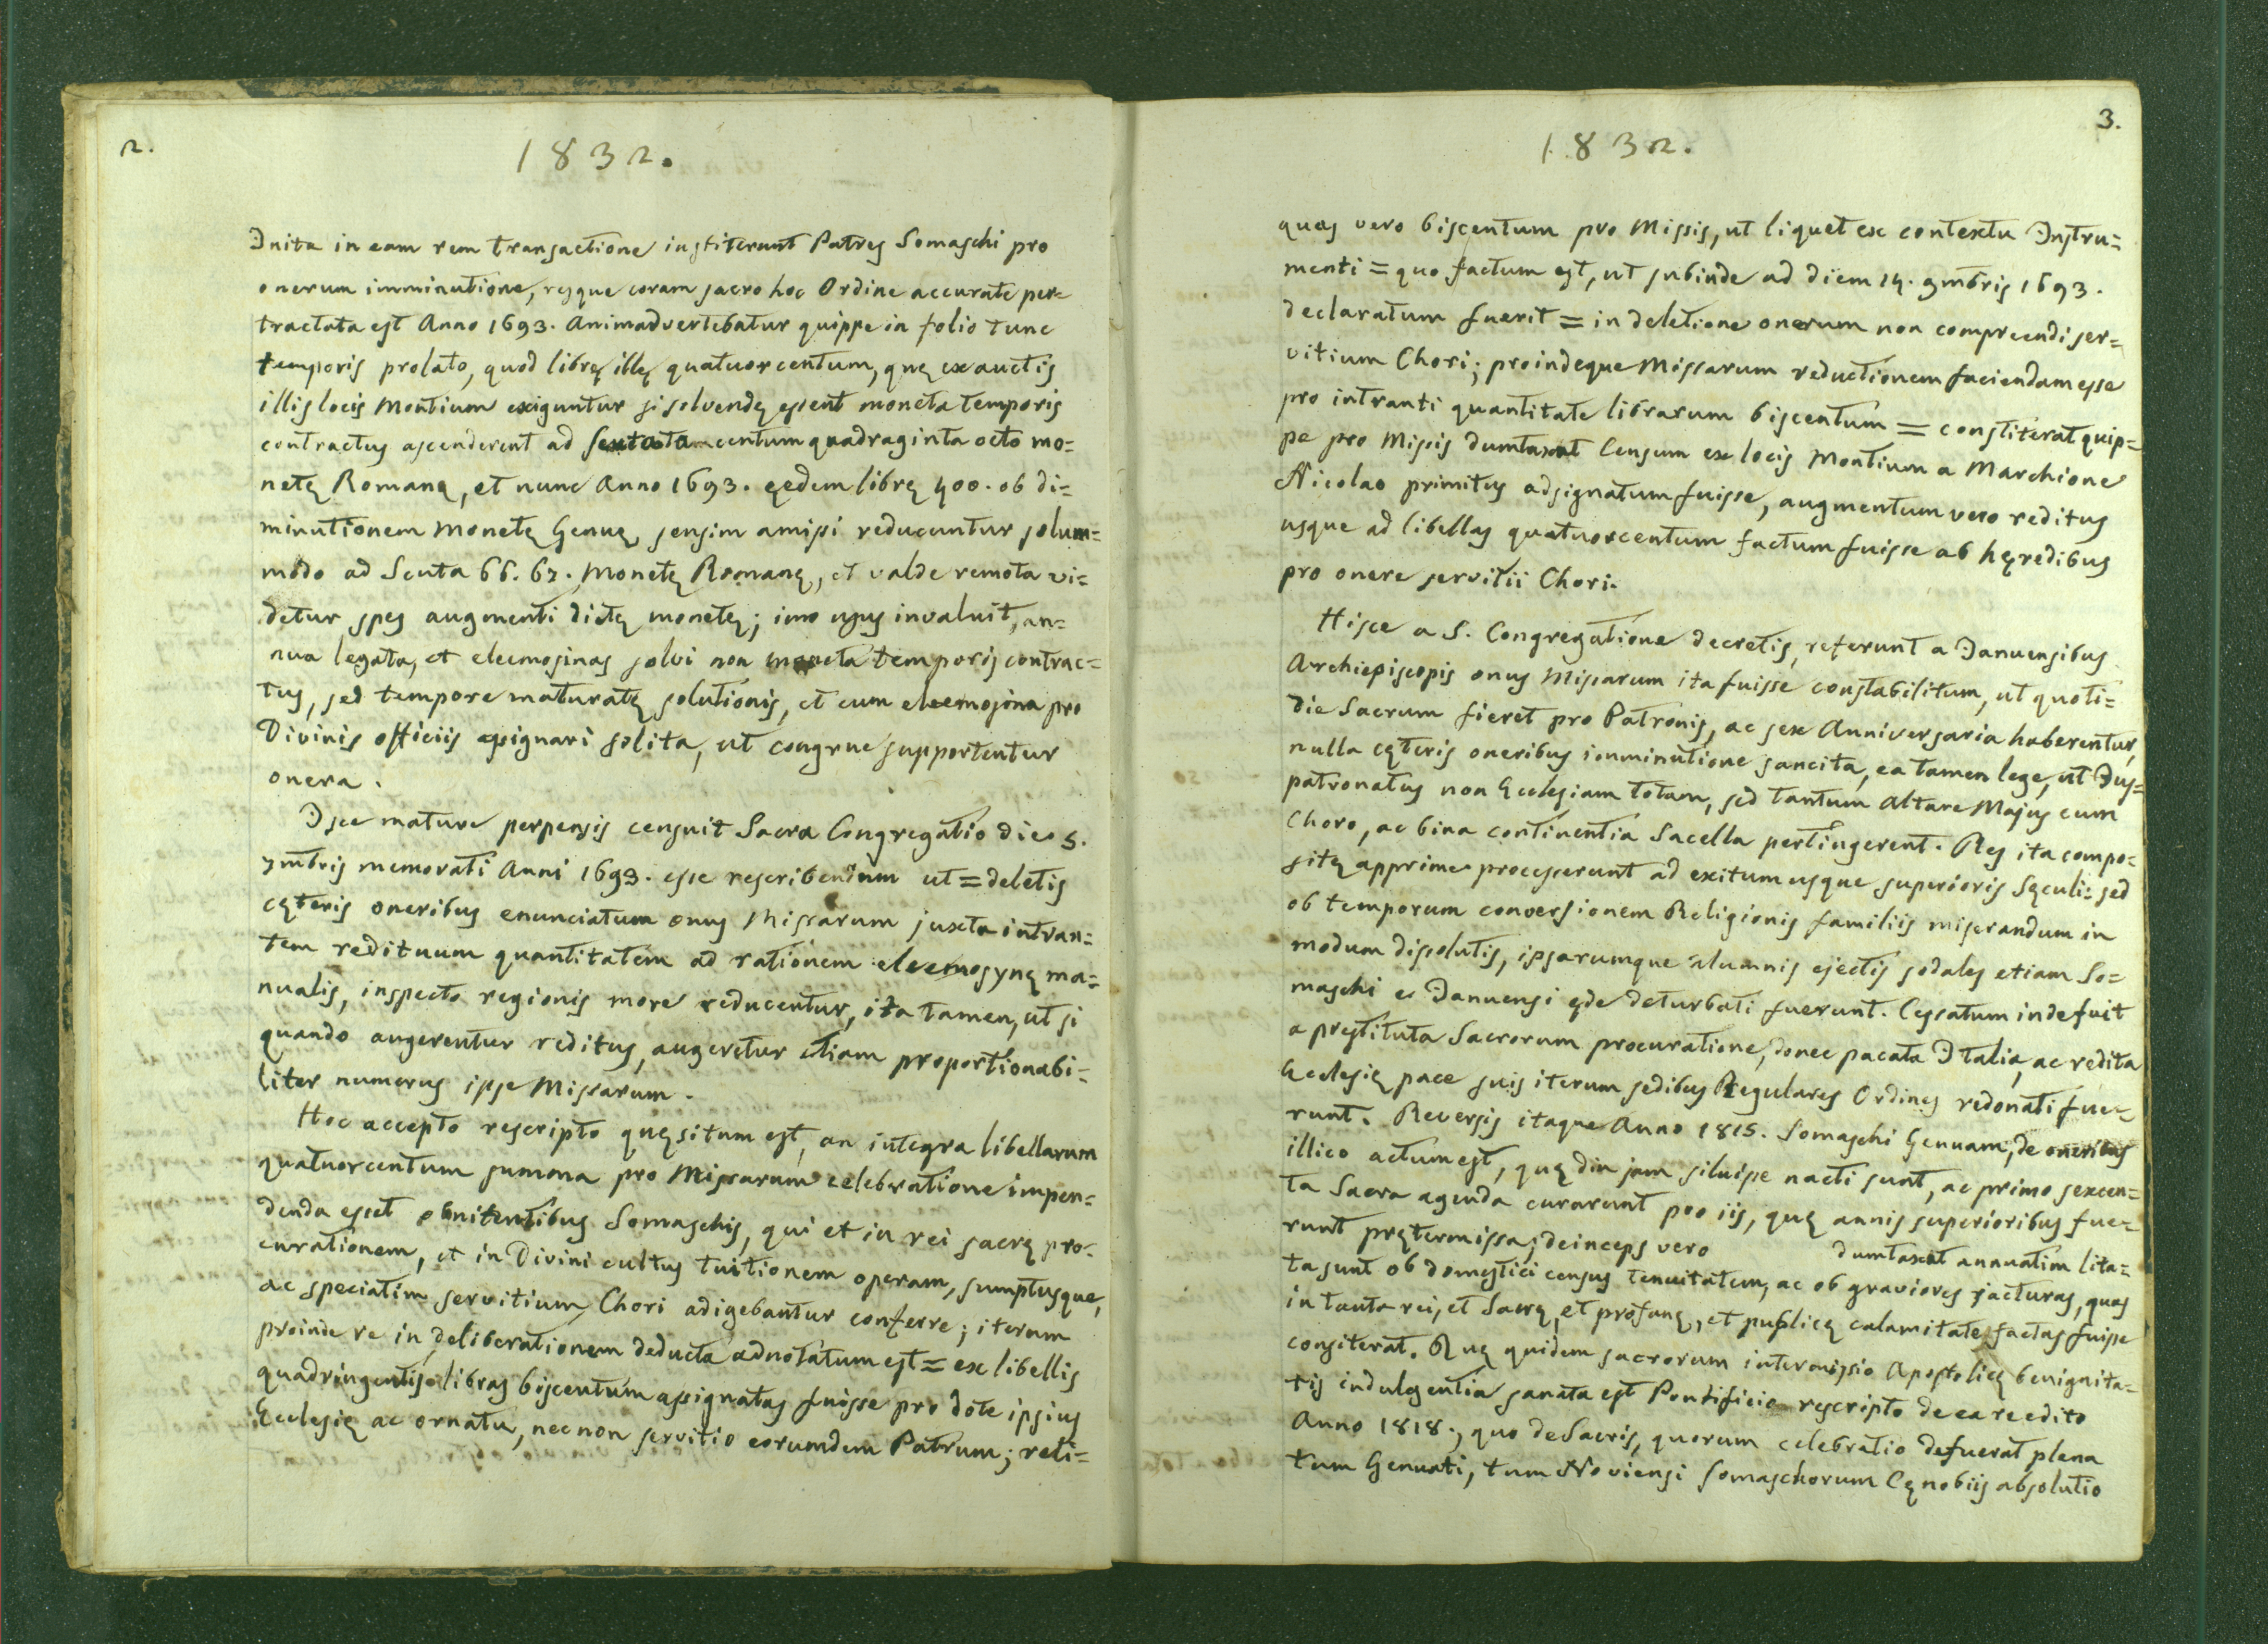 2.
1832.
Inita in eam rem transactione institerunt Patres Somaschi pro
onerum imminutione, resque coram sacro hoc Ordine accurate per=
tractata est Anno 1693. Animadvertebatur quippe in folio tunc
temporis prolato, quod librę illę quatuorcentum, quę ex auctis
illis locis Montium exiguntur si solvendę essent moneta temporis
contractus ascenderent ad scuta centum quadraginta octo mo=
netę Romanę, et nunc Anno 1693. eędem librę 400. ob di=
minutionem Monetę Genuę sensim amissi reducuntur solum=
modo ad Scuta 66. 67. Monetę Romanę, et valde remota vi=
detur spes augmenti dictę monetę; imo usus invaluit, an=
nua legata, et eleemosinas solvi non moneta temporis contrac=
tus, sed tempore maturatę solutionis, et cum eleemosina pro
Divinis officiis assignari solita, ut congrue supportentur
onera.
Isce mature perpensis censuit Sacra Congregatio die 5.
7mbris memorati Anni 1693. esse rescribendum ut = deletis
cęteris oneribus enunciatum onus Missarum juxta intran=
tem redituum quantitatem ad rationem eleemosynę ma=
nualis, inspecto regionis more reducentur, ita tamen, ut si
quando augerentur reditus, augeretur etiam proportionabi=
liter numerus ipse Missarum.
Hoc accepto rescripto quęsitum est, an integra libellarum
quatuorcentum summa pro Missarum celebratione impen=
denda esset obnitentibus Somaschis, qui et in rei sacrę pro=
curationem, et in Divini cultus tuitionem operam, sumptusque,
ac speciatim servitium Chori adigebantur conferre; iterum
proinde re in deliberationem deducta adnotatum est = ex libellis
quadringentis libras biscentum assignatas fuisse pro dote ipsius
Ecclesię ac ornatu, nec non servitio eorumdem Patrum; reli=
3.
1832.
quas vero biscentum pro Missis, ut liquet ex contextu Instru=
menti = quo factum est, ut subinde ad diem 14. 9mbris 1693.
declaratum fuerit = in deletione onerum non compreendi ser=
vitium Chori; proindeque Missarum reductionem faciendam esse
pro intranti quantitate librarum biscentum = constiterat quip=
pe pro Missis dumtaxat Censum ex locis Montium a Marchione
Nicolao primitus adsignatum fuisse, augmentum vero reditus
usque ad libellas quatuorcentum factum fuisse ab hęredibus
pro onere servitii Chori.
Hisce a S. Congregatione decretis, referunt a Januensibus
Archiepiscopis onus Missarum ita fuisse constabilitum, ut quoti=
die Sacrum fieret pro Patronis, ac sex Anniversaria haberentur,
nulla cęteris oneribus imminutione sancita, ea tamen lege, ut Jus=
patronatus non Ecclesiam totam, sed tantum Altare Majus cum
Choro, ac bina continentia Sacella pertingerent. Res ita compo=
sitę apprime processerunt ad exitum usque superioris Sęculi: sed
ob temporum conversionem Religionis familiis miserandum in
modum dissolutis, ipsarumque alumnis ejectis sodales etiam So=
maschi e Januensi ęde deturbati fuerunt. Cessatum inde fuit
a prestituta Sacrorum procuratione, donec pacata Italia, ac redita
Ecclesię pace suis iterum sedibus Regulares Ordines redonati fue=
runt. Reversis itaque Anno 1815. Somaschi Genuam, de oneribus
illico actum est, quę diu jam siluisse nacti sunt, ac primo sexcen=
ta Sacra agenda curarunt pro iis, quę annis superioribus fue=
runt prętermissa; deinceps vero dumtaxat annuatim lita=
ta sunt ob domestici census tenuitatem, ac ob graviores jacturas, quas
in tanta rei, et Sacrę, et profanę, et publicę calamitate factas fuisse
consiterat. Quę quidem sacrorum intermissio Apostolicę benignita=
tis indulgentia sanata est Pontificio rescripto de ea re edito
Anno 1818., quo de Sacris, quorum celebratio defuerat plena
tum Genuati, tum Noviensi Somaschorum Cęnobiis absolutio